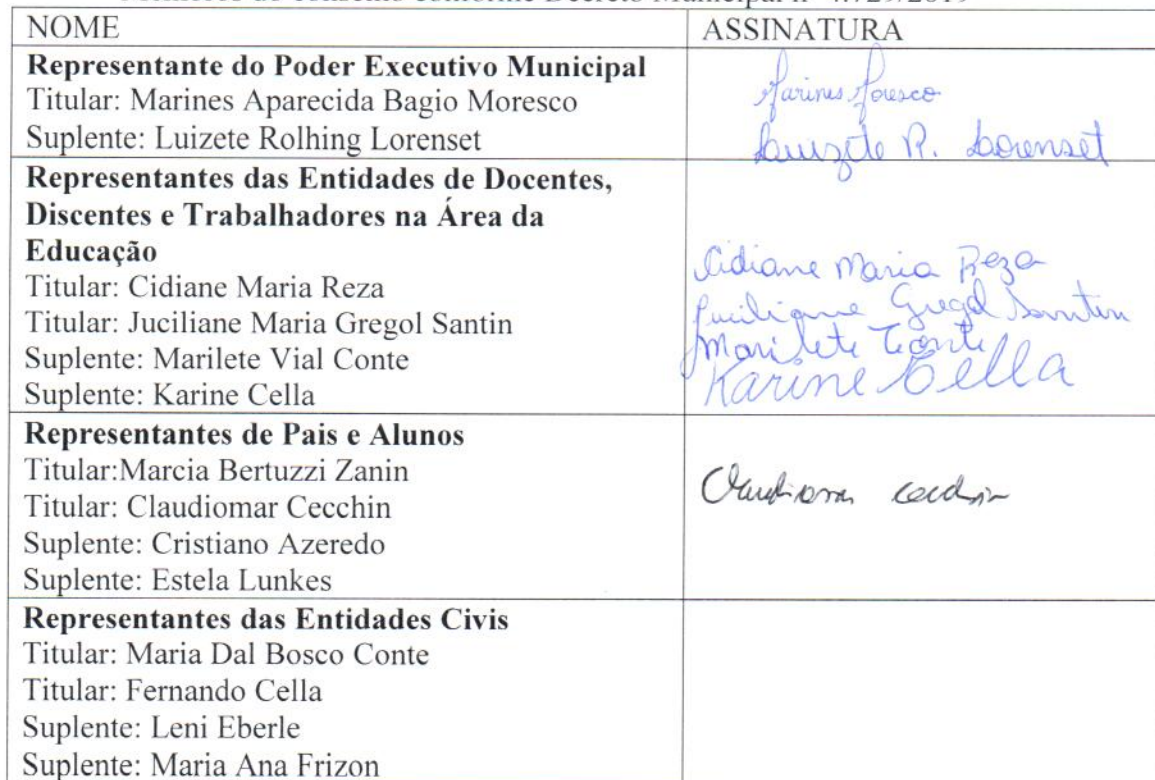 NOME
ASSINATURA
Representante do Poder Executivo Municipal
Titular: Marines Aparecida Bagio Moresco
Suplente: Luizete Rolhing Lorenset
Marines Moresco
Luizete R. Lorenset
Representantes das Entidades de Docentes,
Discentes e Trabalhadores na Área da
Educação
Titular: Cidiane Maria Reza
Titular: Juciliane Maria Gregol Santin
Suplente: Marilete Vial Conte
Suplente: Karine Cella
Cidiane Maria Reza
Juciliane Gregol Santin
Marilete Conte
Karine Cella
Representantes de Pais e Alunos
Titular:Marcia Bertuzzi Zanin
Titular: Claudiomar Cecchin
Suplente: Cristiano Azeredo
Suplente: Estela Lunkes
Claudiomar Cecchin
Representantes das Entidades Civis
Titular: Maria Dal Bosco Conte
Titular: Fernando Cella
Suplente: Leni Eberle
Suplente: Maria Ana Frizon